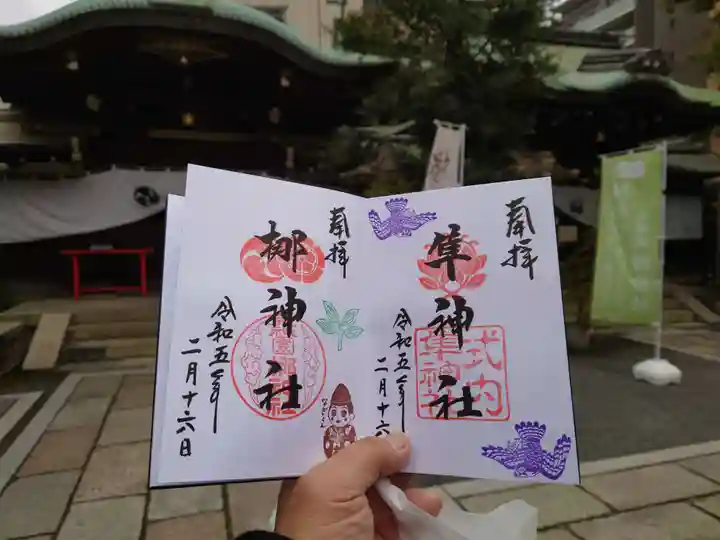 奉拝
隼神社
式内
隼神社
令和五年
二月十六
奉拝
梛神社
令和五年
二月十六日